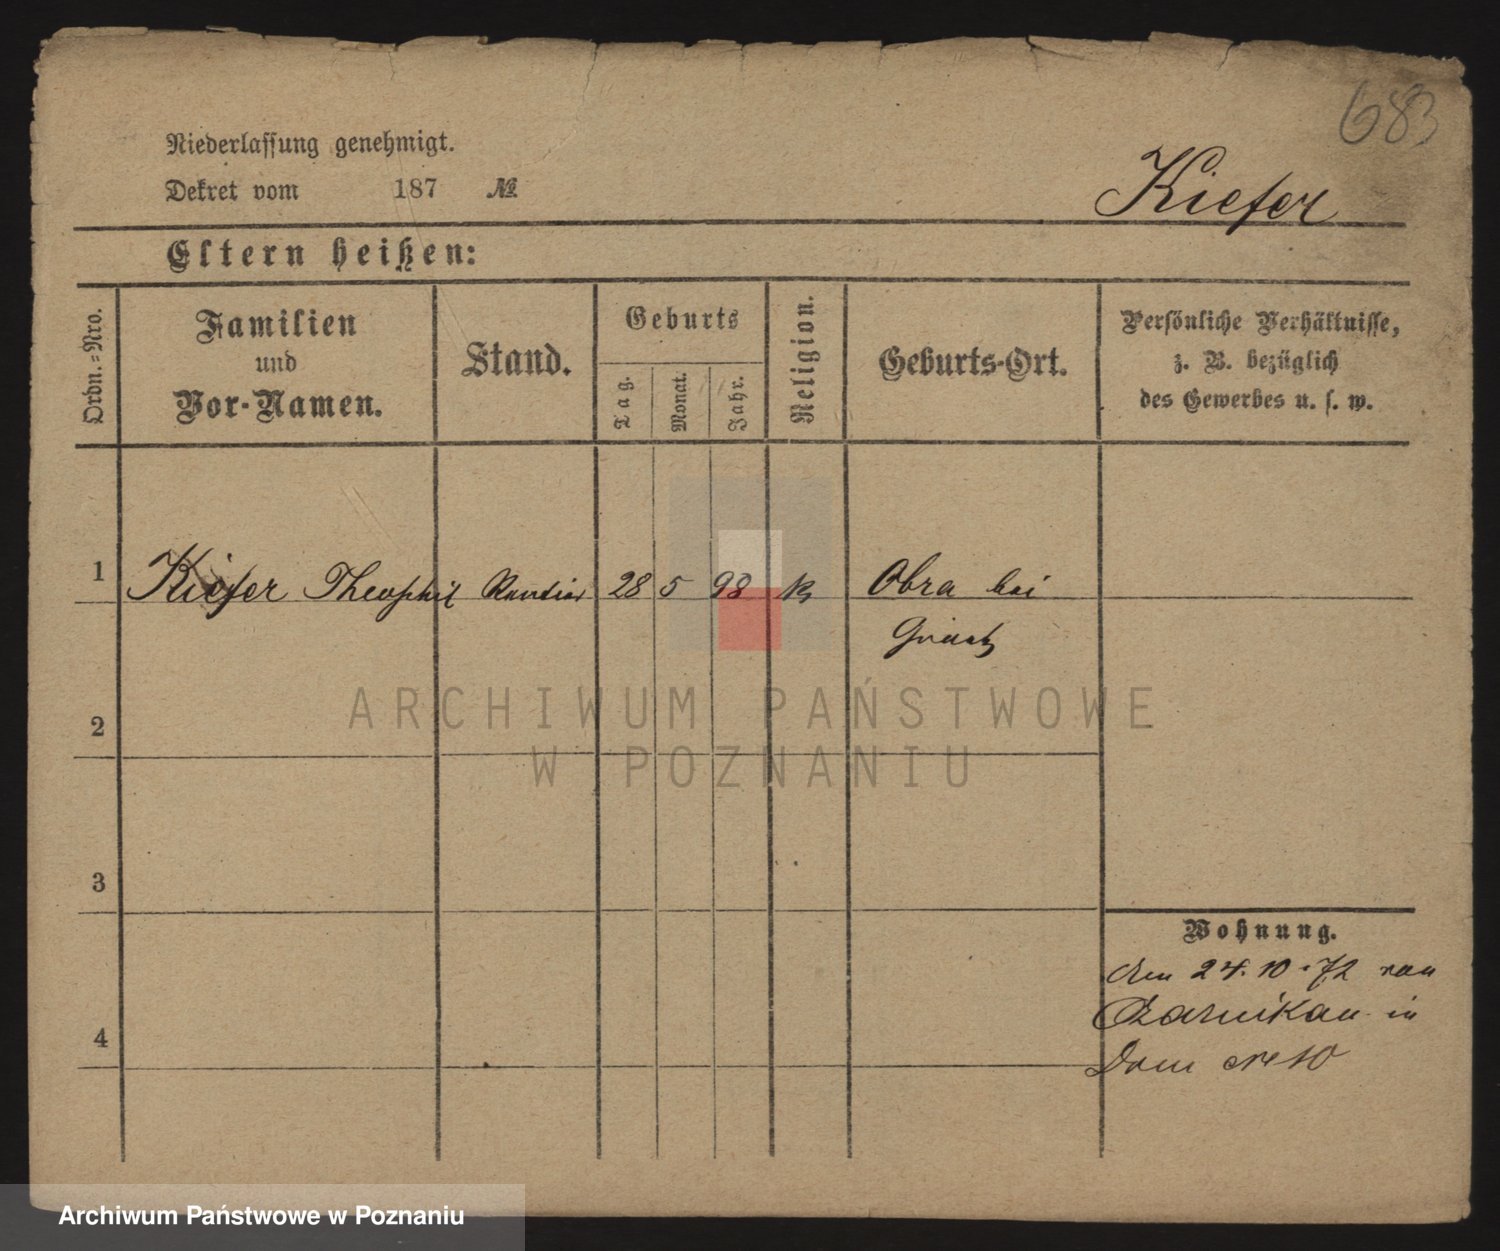 683
Niederlassung genehmigt.
Dekret vom 187 №
Kiefer
Eltern heißen:
Ordn.=Nro.
Familien
und
Vor-Namen.
Stand.
Geburts
Tag.
Monat.
Jahr.
Religion.
Geburts-Ort.
Persönliche Verhältnisse,
z. B. bezüglich
des Gewerbes u. s. w.
1 Kiefer Theophil Rentier 28 5 98 k Obra bei
Graetz
2
3
4
Wohnung.
den 24.10.72 von
Czarnikau in
Dom No 10
ARCHIWUM PAŃSTWOWE
W POZNANIU
Archiwum Państwowe w Poznaniu